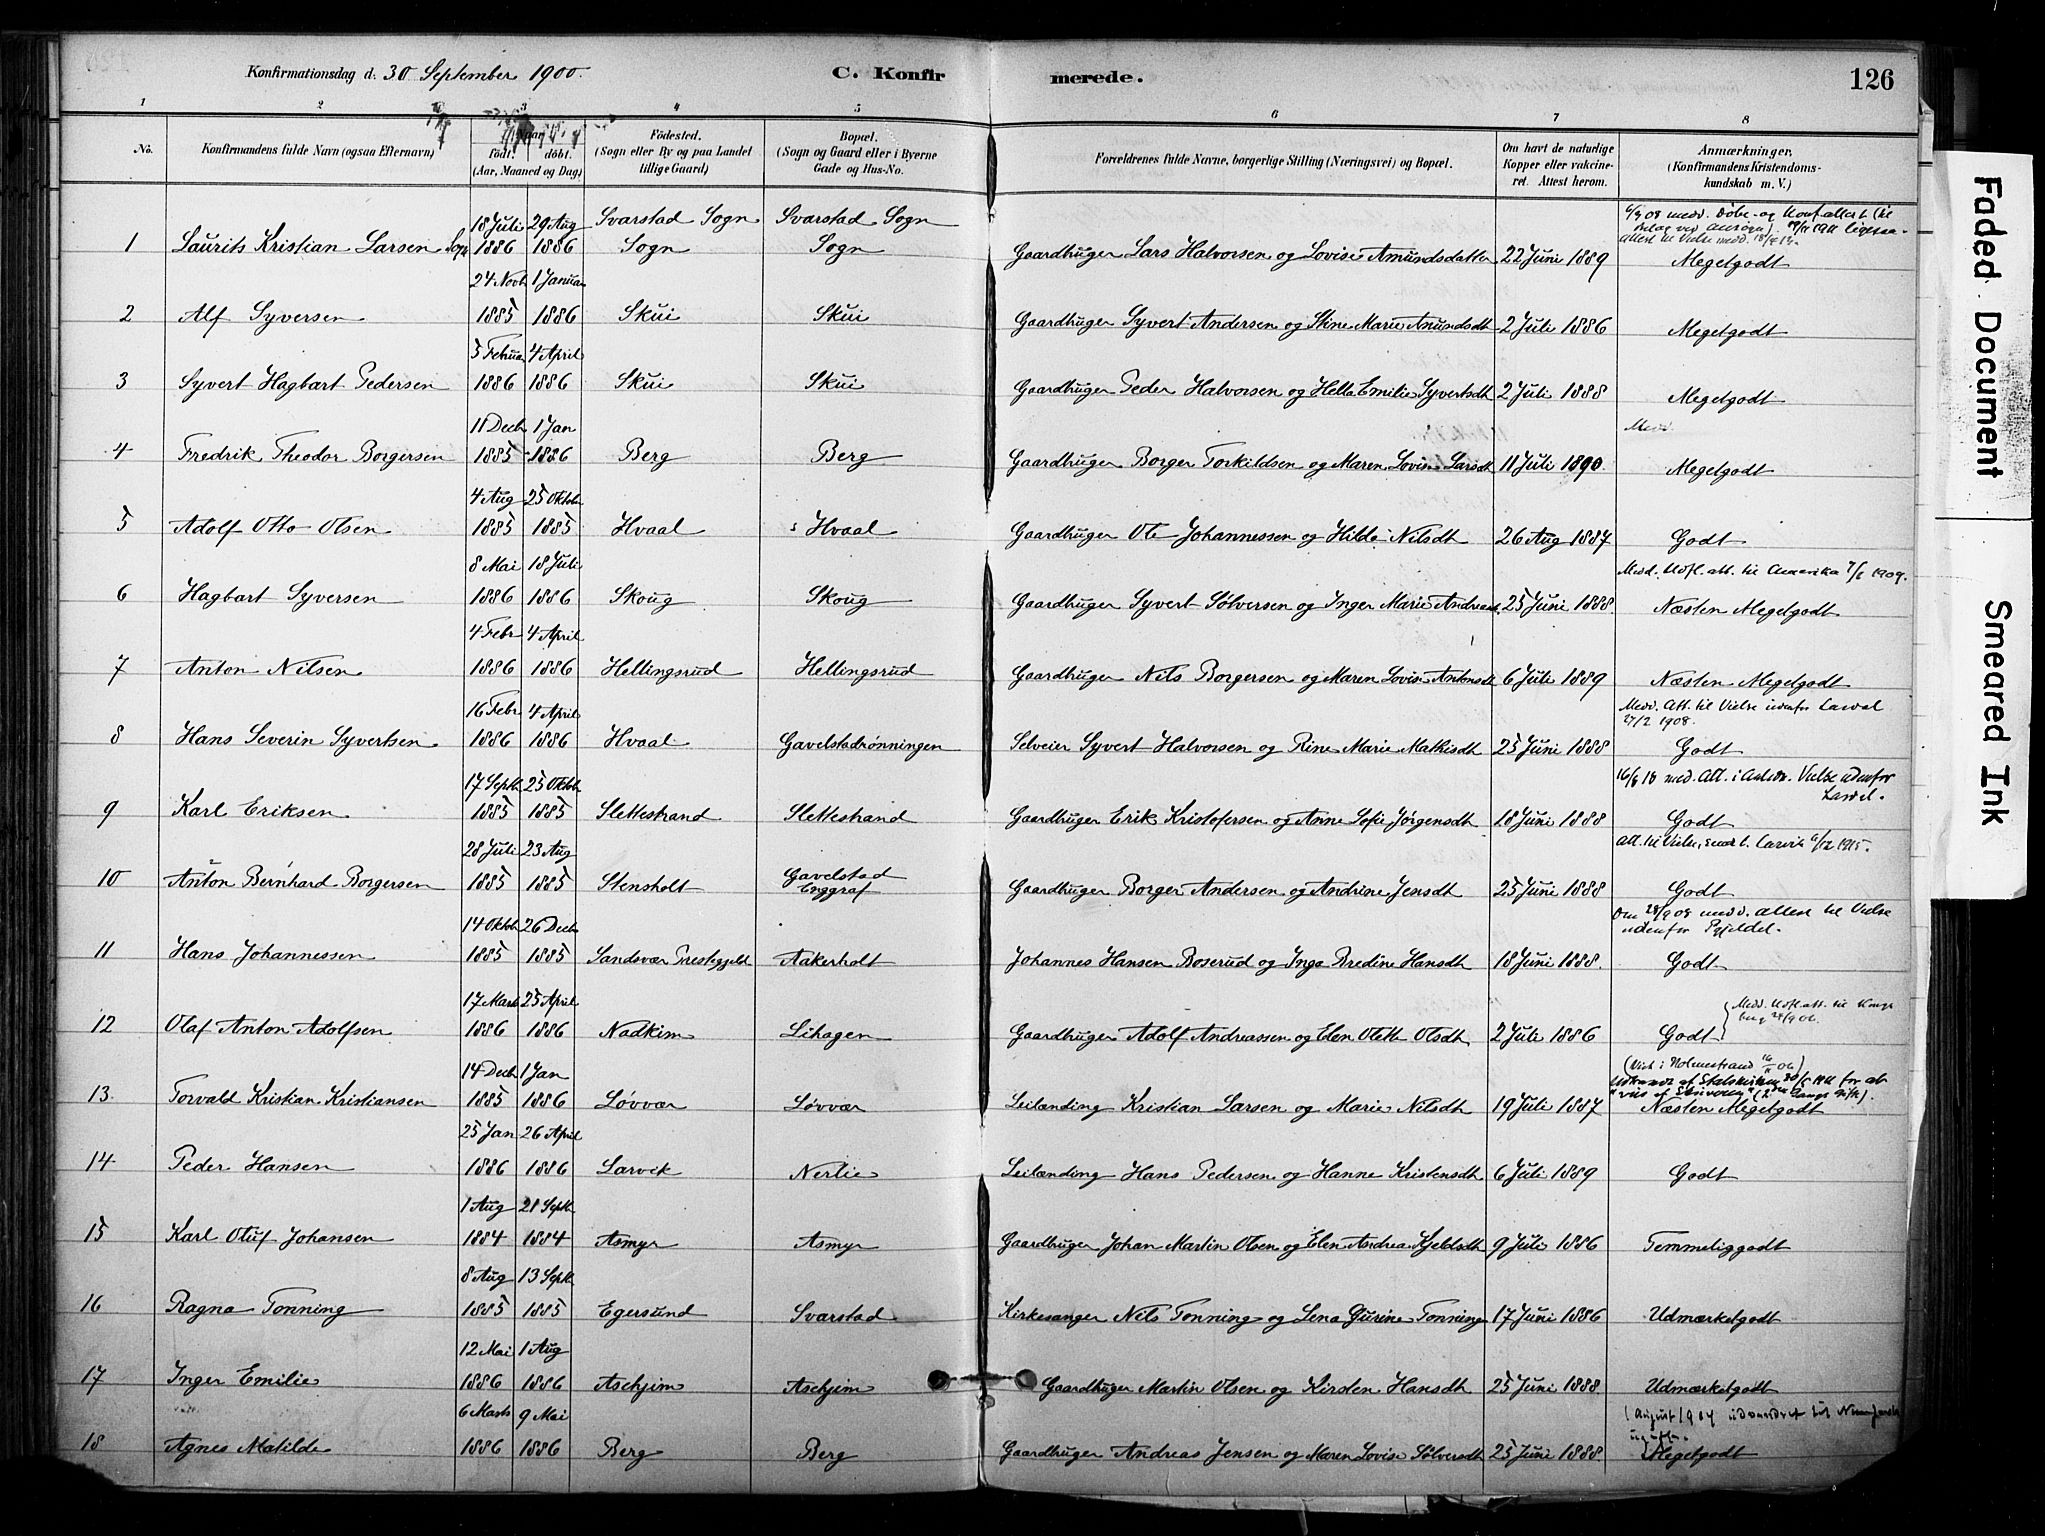 Konfirmationsdag d. 30 September 1900. C. Konfir merede. 126
1 2 3 4 5 6 7 8
No. Konfirmandens fulde Navn (ogsaa Efternavn) Naar født. døbt. (Aar, Maaned og Dag) Fødested. (Sogn eller By og paa Landet tillige Gaard) Bopæl. (Sogn og Gaard eller i Byerne Gade og Hus-No. Forældrenes fulde Navne, borgerlige Stilling (Næringsvei) og Bopæl. Om havt de naturlige Kopper eller vakcineret. Attest herom. Anmærkninger. (Konfirmandens Kristendomskundskab m. V.)
18 Juli 29 Aug Svarstad Sogn Svarstad Sogn
1 Laurits Kristian Larsen 1886 1886 Sogn Sogn Gaardbruger Lars Halvorsen og Lovise Amundsdatter 22 Juni 1889 Megetgodt
24 Novb 1 Januar
2 Alf Syversen 1885 1886 Skui Skui Gaardbruger Syvert Andersen og Stine Marie Anundsdt 2 Juli 1886 Megetgodt
5 Februar 4 April
3 Syvert Hagbart Pedersen 1886 1886 Skui Skui Gaardbruger Peder Halvorsen og Hella Emilie Syvertsdt 2 Juli 1888 Megetgodt
11 Decb 1 Jan Medd.
4 Fredrik Theodor Borgersen 1885 1886 Berg Berg Gaardbruger Borger Torkildsen og Maren Lovise Larsdt 11 Juli 1890. Megetgodt
4 Aug 25 Oktobr
5 Adolf Otto Olsen 1885 1885 Hvaal Hvaal Gaardbruger Ole Johannessen og Hilda Nilsdt 26 Aug 1887 Godt
8 Mai 18 Juli Medd. Udfl. att. til Amerika 7/6 1909.
6 Hagbart Syversen 1886 1886 Skoug Skoug Gaardbruger Syvert Sølversen og Inger Marie Andreasd. 25 Juni 1888. Næsten Megetgodt
4 Febr 4 April
7 Anton Nilsen 1886 1886 Hellingsrud Hellingsrud Gaardbruger Nils Borgersen og Maren Lovise Antonsdt 6 Juli 1889 Næsten Megetgodt
16 Febr 4 April Medd. Att. til Vielse udenfor
27/2 1908.
8 Hans Severin Syvertsen 1886 1886 Hvaal Gavelstadrønningen Selveier Syvert Halvorsen og Rine Marie Mathisdt 25 Juni 1888 Godt
17 Septb 25 Oktobr 16/8 18 med. Att. i Anledn. Vielse udenfor
9 Karl Eriksen 1885 1885 Slettestrand Slettestrand Gaardbruger Erik Kristofersen og Anne Sofie Jørgensdt 18 Juni 1888 Godt
28 Juli 23 Aug Att. til Vielse, sendt t. Larvik 6/12 1915.
10 Anton Bernhard Borgersen 1885 1885 Stensholt Gavelstad Enggraf Gaardbruger Borger Andersen og Andrine Jensdt 25 Juni 1888 Godt
14 Oktob 26 Decb Den 28/9 08 medd. attest til Vielse
udenfor
11 Hans Johannessen 1885 1885 Sandsvær Prestegjeld Aakerholt Johannes Hansen Boserud og Inga Bredine Hansdt 18 Juni 1888. Godt
17 Marts 25 April Medd. Udfl. att. til Kongsberg 24/9 06.
12 Olaf Anton Adolfsen 1886 1886 Nadkim Lihagen Gaardbruger Adolf Andreassen og Elen Olette Olsdt 2 Juli 1886 Godt
14 Decb 1 Jan (Viet i Holmestrand
13 Torvald Kristian Kristiansen 1885 1886 Løvvær Løvvær Leilænding Kristian Larsen og Marie Nilsdt 19 Juli 1887 Næsten Megetgodt
25 Jan 26 April
14 Peder Hansen 1886 1886 Larvik Nerlie Leilænding Hans Pedersen og Hanne Kristensdt 6 Juli 1889 Godt
1 Aug 21 Septb
15 Karl Oluf Johansen 1884 1884 Asmyr Asmyr Gaardbruger Johan Martin Olsen og Elen Andrea Kjeldsdt 9 Juli 1886 Temmeliggodt
8 Aug 13 Septb
16 Ragna Tonning 1885 1885 Egersund Svarstad Kirkesanger Nils Tonning og Lena Gurine Tonning 17 Juni 1886 Udmærketgodt
12 Mai 1 Aug
17 Inger Emilie 1886 1886 Aschjim Aschjim Gaardbruger Martin Olsen og Kirsten Hansdt 25 Juni 1888. Udmærketgodt
6 Marts 9 Mai
18 Agnes Matilde 1886 1886 Berg Berg Gaardbruger Andreas Jensen og Maren Lovise Sølversdt 25 Juni 1888. Megetgodt
Faded Document
Smeared Ink